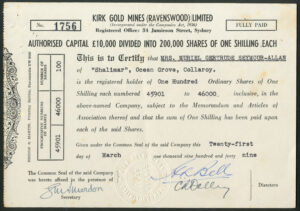 KIRK GOLD MINES (RAVENSWOOD) LIMITED
(Incorporated under the Companies Act, 1936)
Registered Office: 54 Jamieson Street, Sydney
No. 1756
FULLY PAID
AUTHORISED CAPITAL £10,000 DIVIDED INTO 200,000 SHARES OF ONE SHILLING EACH
This is to Certify that MRS. MURIEL GERTRUDE SEYMOUR-ALLAN
of "Shalimar", Ocean Grove, Collaroy,
is the registered holder of One Hundred Ordinary Shares of One
Shilling each numbered 45901 to 46000, inclusive, in the
above-named Company, subject to the Memorandum and Articles of
Association thereof and that the sum of One Shilling has been paid
upon each of the said Shares.
Given under the Common Seal of the said Company this Twenty-first
day of March one thousand nine hundred and forty nine
100
46000
45901
The Common Seal of the said Company
was hereto affixed in the presence of
Secretary
Directors